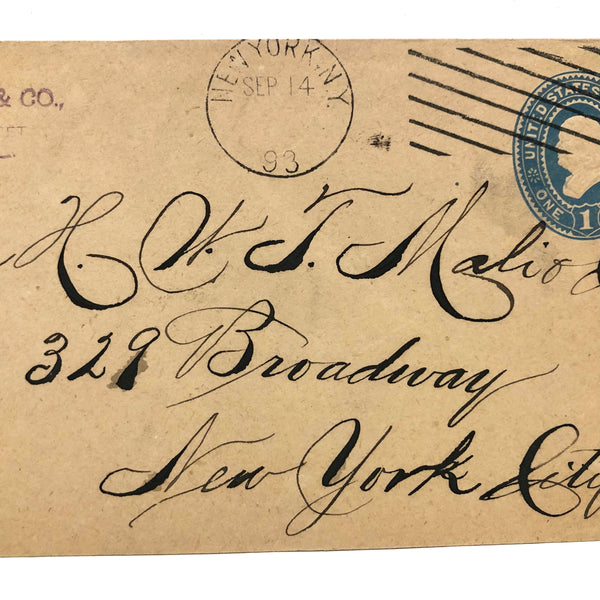 & CO.,
NEW YORK, N.Y.
SEP 14
93
UNITED STATES
ONE 1
H. W. T. Mali &
329 Broadway
New York City